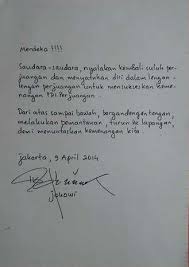 Merdeka !!!!
Saudara-saudara, nyalakan kembali suluh per-
juangan dan menyatukan diri dalam lengan
-lengan perjuangan untuk mensukseskan keme-
nangan PDI Perjuangan.
Dari atas sampai bawah, bergandengan tangan,
melakukan pemantauan, turun ke lapangan,
demi menuntaskan kemenangan kita.
jakarta, 9 April 2014
jokowi